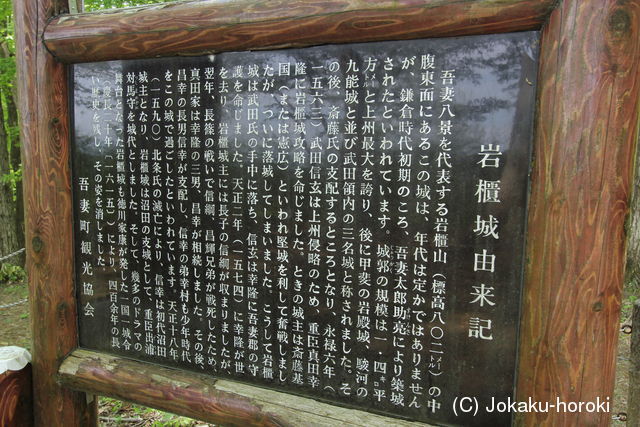 岩櫃城由来記
吾妻八景を代表する岩櫃山（標高八〇二㍍）の中
腹東面にあるこの城は、年代は定かではありません
が、鎌倉時代初期のころ、吾妻太郎助亮により築城
されたといわれています。城郭の規模は一・四㌔平
方㍍と上州最大を誇り、後に甲斐の岩殿城、駿河の
久能城と並び武田領内の三名城と称されました。そ
の後、斎藤氏の支配するところとなり、永禄六年（
一五六三）武田信玄は上州侵略のため、重臣真田幸
隆に岩櫃城攻略を命じました。ときの城主は斎藤基
国（または憲広）といわれ堅城を利して奮戦しまし
たが、ついに落城してしまいました。こうして岩櫃
城は武田氏の手中に落ち、信玄は幸隆に吾妻郡の守
護を命じました。天正二年（一五七四）に幸隆が世
を去り、岩櫃城主には長子の信綱が収まりましたが、
翌年、長篠の戦いで信綱、昌輝兄弟が戦死したため、
真田家は幸隆の三男、昌幸が相続しました。その後、
昌幸の長男信幸が支配し、信幸の弟幸村も少年時代
をこの城で過ごしたといわれています。天正十八年、
（一五九〇）北条氏の滅亡により、信幸は初代沼田
城主となり、岩櫃城は沼田の支城として、重臣出浦
対馬守を城代としました。そして、幾多のドラマの
舞台となった岩櫃城も徳川家康が発した一国一城令
（慶長二十年〔一六一五〕）により、四百余年の長
い歴史を残し、その姿を消しました。
吾妻町観光協会
(C) Jokaku-horoki